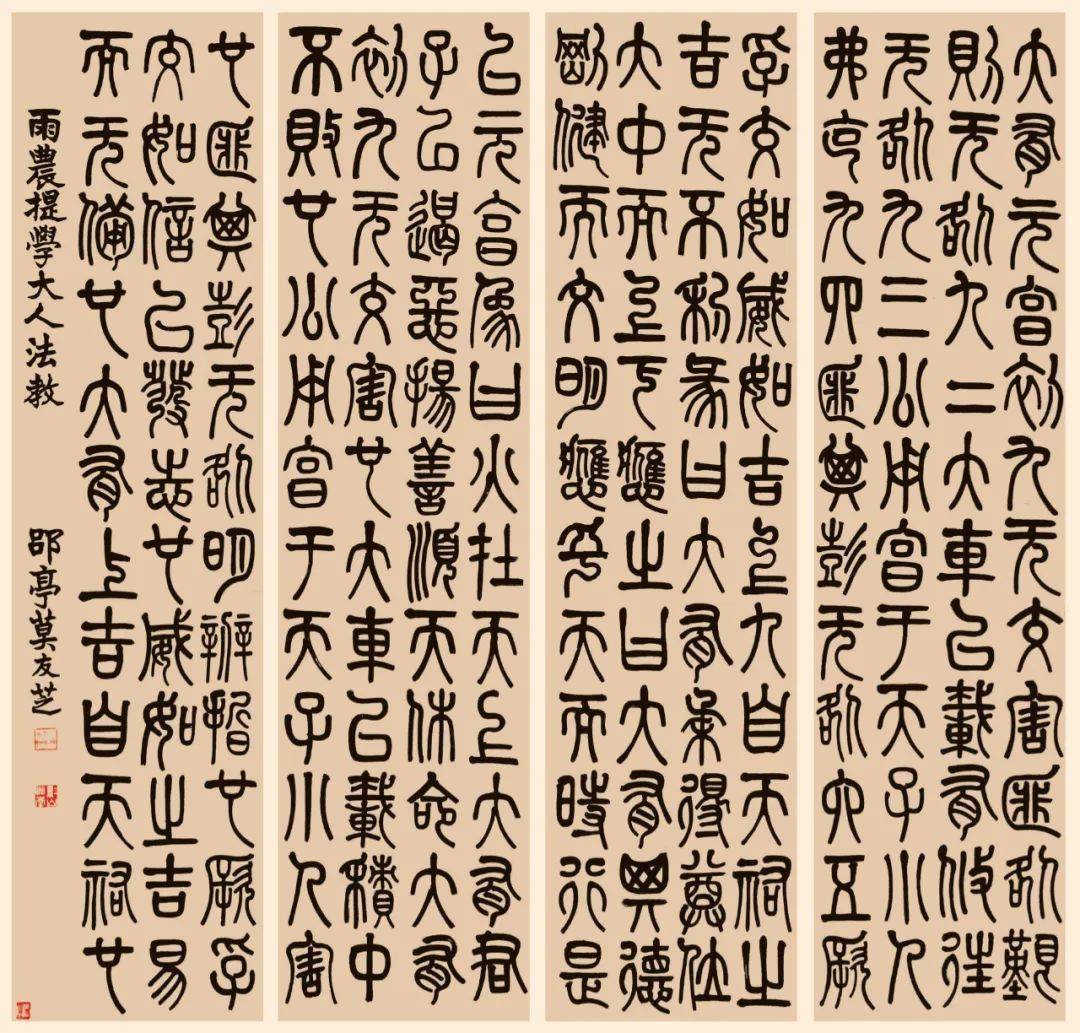 大有元亨初九无交害匪咎艱
則无咎九二大車以載有攸往
无咎九三公用亨于天子小人
弗克九四匪其彭无咎六五厥
孚交如威如吉上九自天祐之
吉无不利彖曰大有柔得尊位
大中而上下應之曰大有其德
剛健而文明應乎天而時行是
以元亨象曰火在天上大有君
子以遏惡揚善順天休命大有
初九无交害也大車以載積中
不敗也公用亨于天子小人害
也匪其彭无咎明辨晢也厥孚
交如信以發志也威如之吉易
而无備也大有上吉自天祐也
雨農提學大人法教 郘亭莫友芝